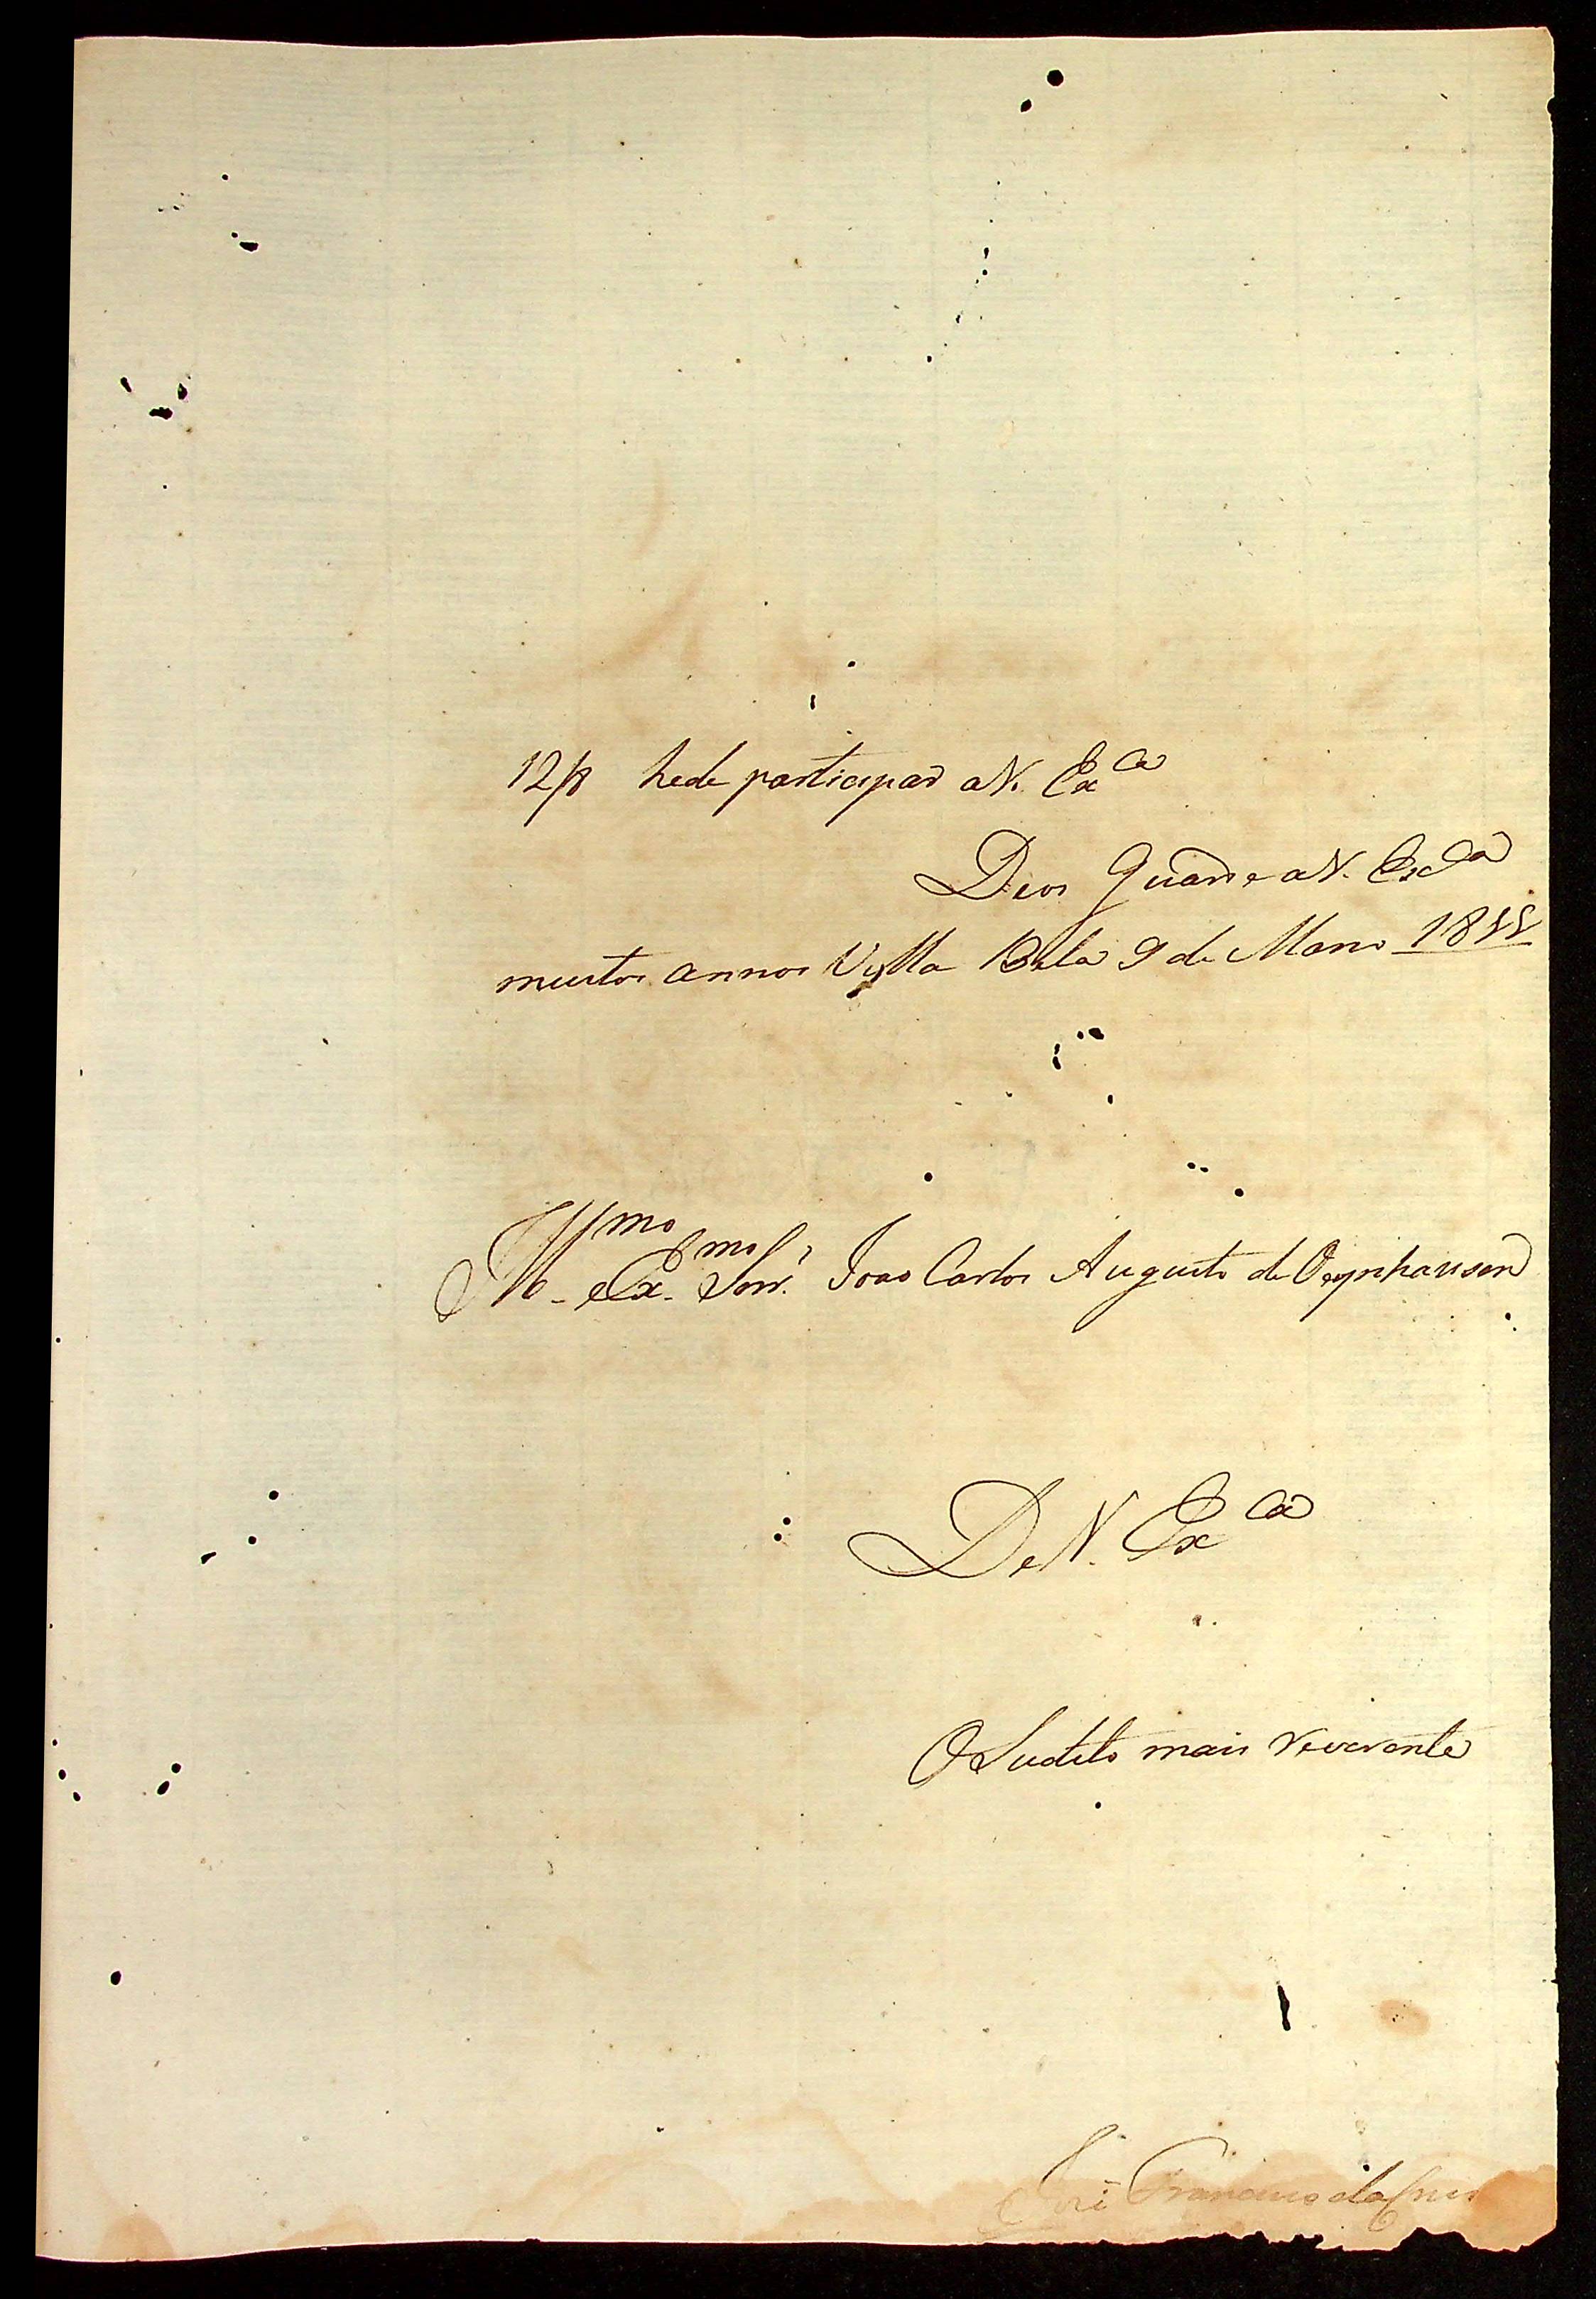 12/8 hede participar a V. Exca
Deos Guarde a V. Exca
muitos annos Villa Bela 9 de Março 1811
Illmo e Exmo Snr. Joao Carlos Augusto de Oeynhausen
De V. Exca
O Sudito mais reverente
José Francisco da Cruz